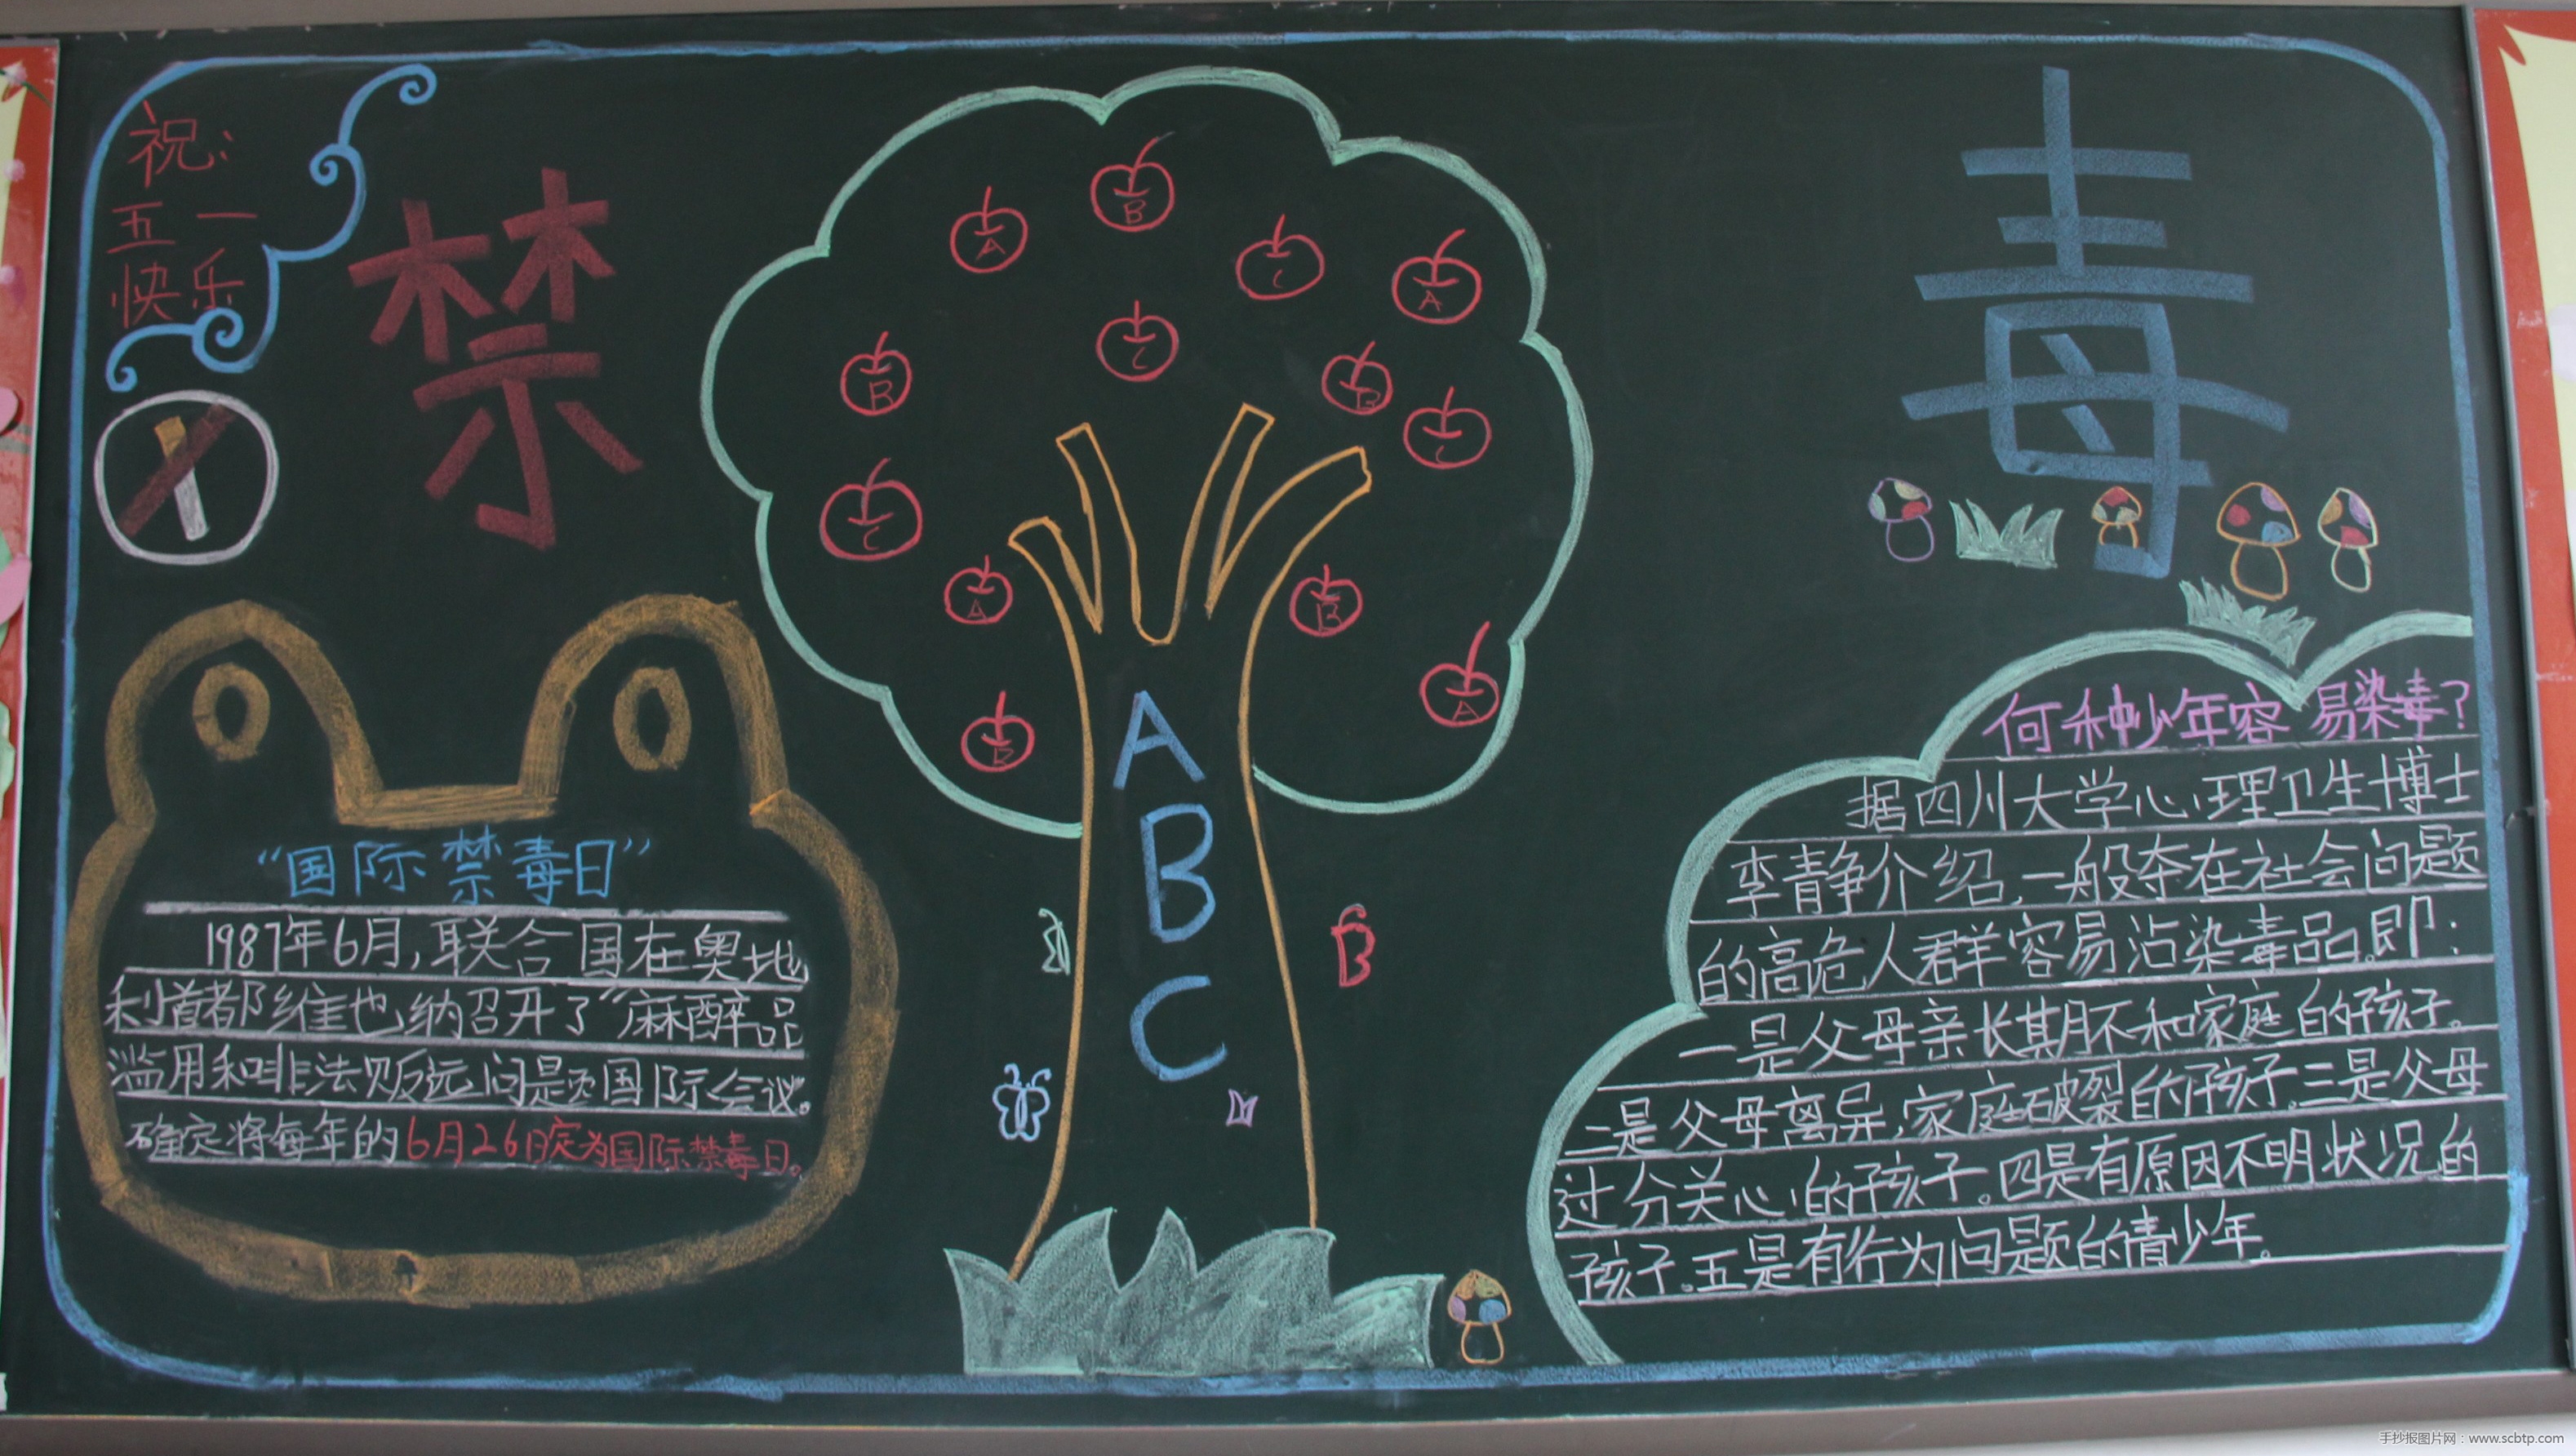 祝:
五一
快乐
禁
毒
A
B
C
A
R
C
B
B
C
A
C
B
A
B
R
A
A
B
C
B
“国际禁毒日”
1987年6月,联合国在奥地
利首都维也纳召开了“麻醉品
滥用和非法贩运问题国际会议。
确定将每年的6月26日定为国际禁毒日。
何种少年容易染毒?
据四川大学心理卫生博士
李青静介绍,一般夺在社会问题
的高危人群容易沾染毒品。即:
一是父母亲长期不和家庭的孩子。
二是父母离异,家庭破裂的孩子。三是父母
过分关心的孩子。四是有原因不明状况的
孩子。五是有行为问题的青少年。
手抄报图片网:www.scbtp.com